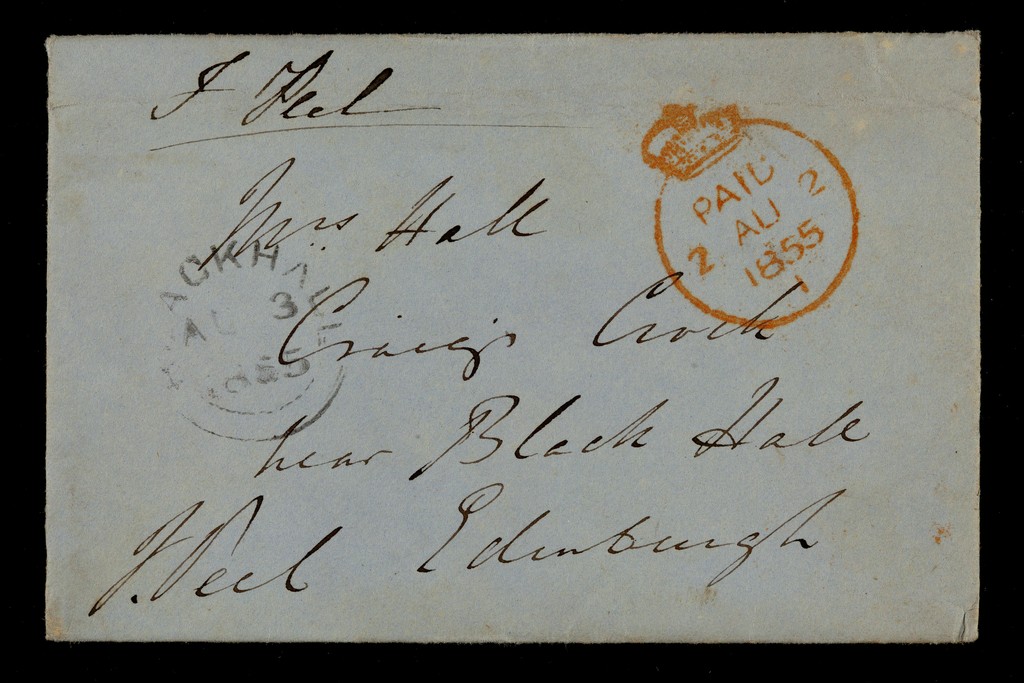 F Peel
Mrs Hall
Craig Crook
near Black Hall
Edinburgh
F. Peel
PAID
2 AU 2
1855
1
ACKHA
AU 3
1855